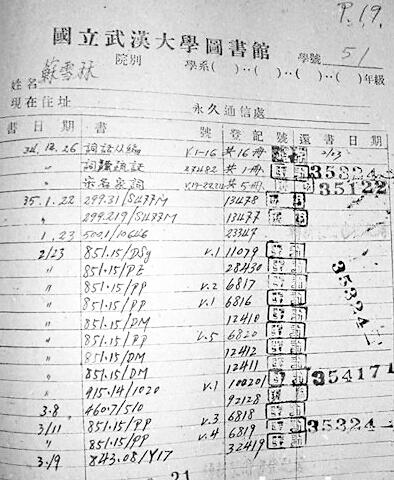 P.19.
國立武漢大學圖書館
院別 學系( )‥( )‥( )年級 學號 51
姓名 蘇雪林
現在住址 永久通信處
書 日 期 書 號 登記 號 還 書 日 期
34.12.26 詞話丛編 v.1-16 共16冊 2/23
〃 詞 27482 共1冊 35324
〃 宋名家詞 共5冊 35122
35.1.22 299.31/S433M 13478
〃 299.219/S433M 13477
1.23 500.1/10646 23347
2/23 851.15/DSy v.1 11079
〃 851.15/PE 28430
〃 851.15/PP v.2 6817
〃 851.15/PP v.1 6816
〃 851.15/DM 12410
〃 851.15/PP v.5 6820
〃 851.15/DM 12412
〃 851.15/DM 12411
〃 915.14/1020 v.1 100201 354171
3.8 460.7/510 92128
3/11 851.15/PP v.3 6818 35324
〃 851.15/PP v.4 6819
3./9 843.08/Y17 32419
35324
21